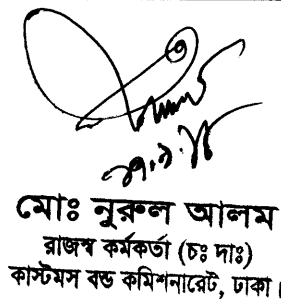 মোঃ নুরুল আলম
রাজস্ব কর্মকর্তা (চঃ দাঃ)
কাস্টমস বন্ড কমিশনারেট, ঢাকা।